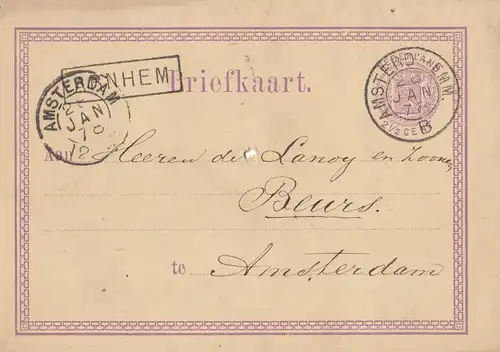 ARNHEM
Briefkaart.
AMSTERDAM
JAN
78
AMSTERDAM
28
JAN
B
2½ CE
Aan Heeren de Lanoy en Zoonen
Beurs.
te Amsterdam